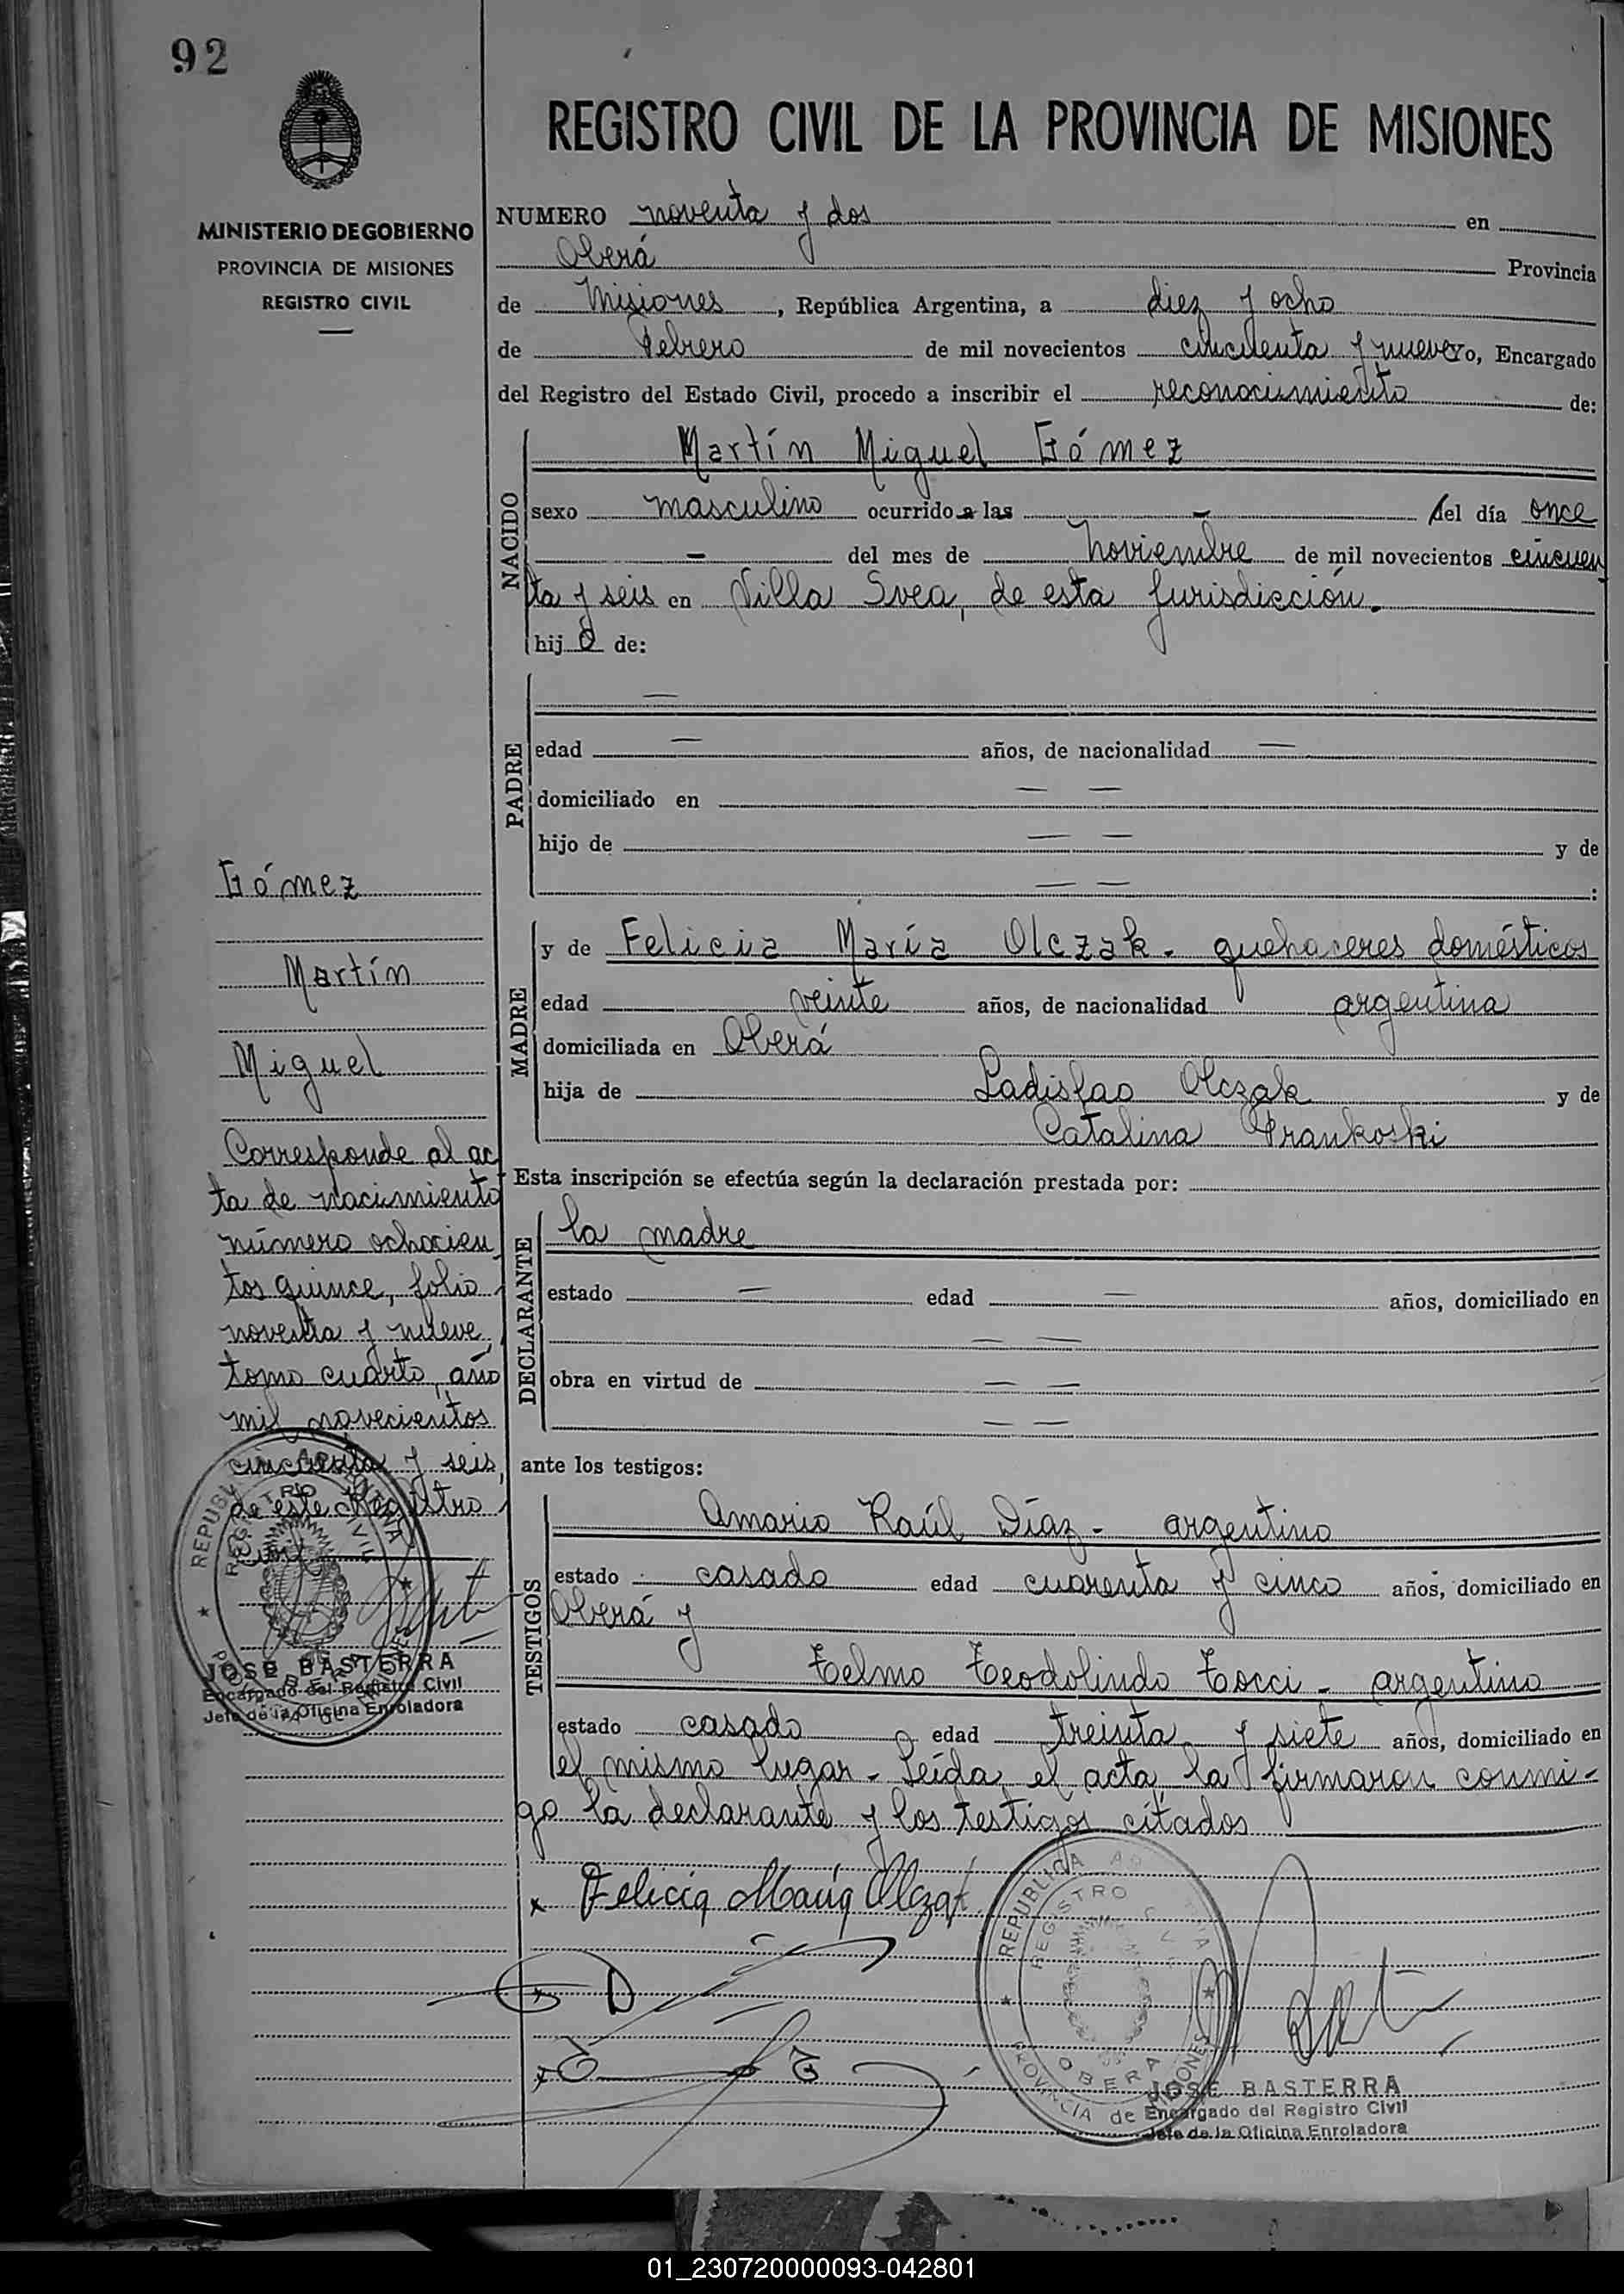 92
REGISTRO CIVIL DE LA PROVINCIA DE MISIONES
MINISTERIO DE GOBIERNO
PROVINCIA DE MISIONES
REGISTRO CIVIL
NUMERO noventa y dos en
Oberá Provincia
de Misiones, República Argentina, a diez y ocho
de Febrero de mil novecientos cincuenta y nueve yo, Encargado
del Registro del Estado Civil, procedo a inscribir el reconocimiento de:
NACIDO
Martín Miguel Gómez
sexo masculino ocurrido a las - del día once
- del mes de noviembre de mil novecientos cincuen
ta y seis en Villa Svea, de esta jurisdicción.
hij o de:
PADRE
—
edad — años, de nacionalidad —
domiciliado en — —
hijo de — — y de
— — :
MADRE
y de Felicia María Olczak - quehaceres domésticos
edad veinte años, de nacionalidad argentina
domiciliada en Oberá
hija de Ladislao Olczak y de
Catalina Frankoski
Esta inscripción se efectúa según la declaración prestada por:
DECLARANTE
la madre
estado — edad — años, domiciliado en
— —
obra en virtud de — —
— —
ante los testigos:
TESTIGOS
Amario Raúl Díaz - argentino
estado casado edad cuarenta y cinco años, domiciliado en
Oberá y
Telmo Teodolindo Tocci - argentino
estado casado edad treinta y siete años, domiciliado en
el mismo lugar - Leída el acta, la firmaron conmi-
go la declarante y los testigos citados
x Felicia María Olczak
REPUBLICA ARGENTINA
REGISTRO CIVIL
OBERA
PROVINCIA de MISIONES
JOSE BASTERRA
Encargado del Registro Civil
Jefe de la Oficina Enroladora
Gómez
Martín
Miguel
Corresponde al ac
ta de nacimiento
número ochocien
tos quince, folio
noventa y nueve,
tomo cuarto, año
mil novecientos
cincuenta y seis,
de este Registro
REPUBLICA ARGENTINA
REGISTRO CIVIL
JOSE BASTERRA
Encargado del Registro Civil
Jefe de la Oficina Enroladora
01_230720000093-042801